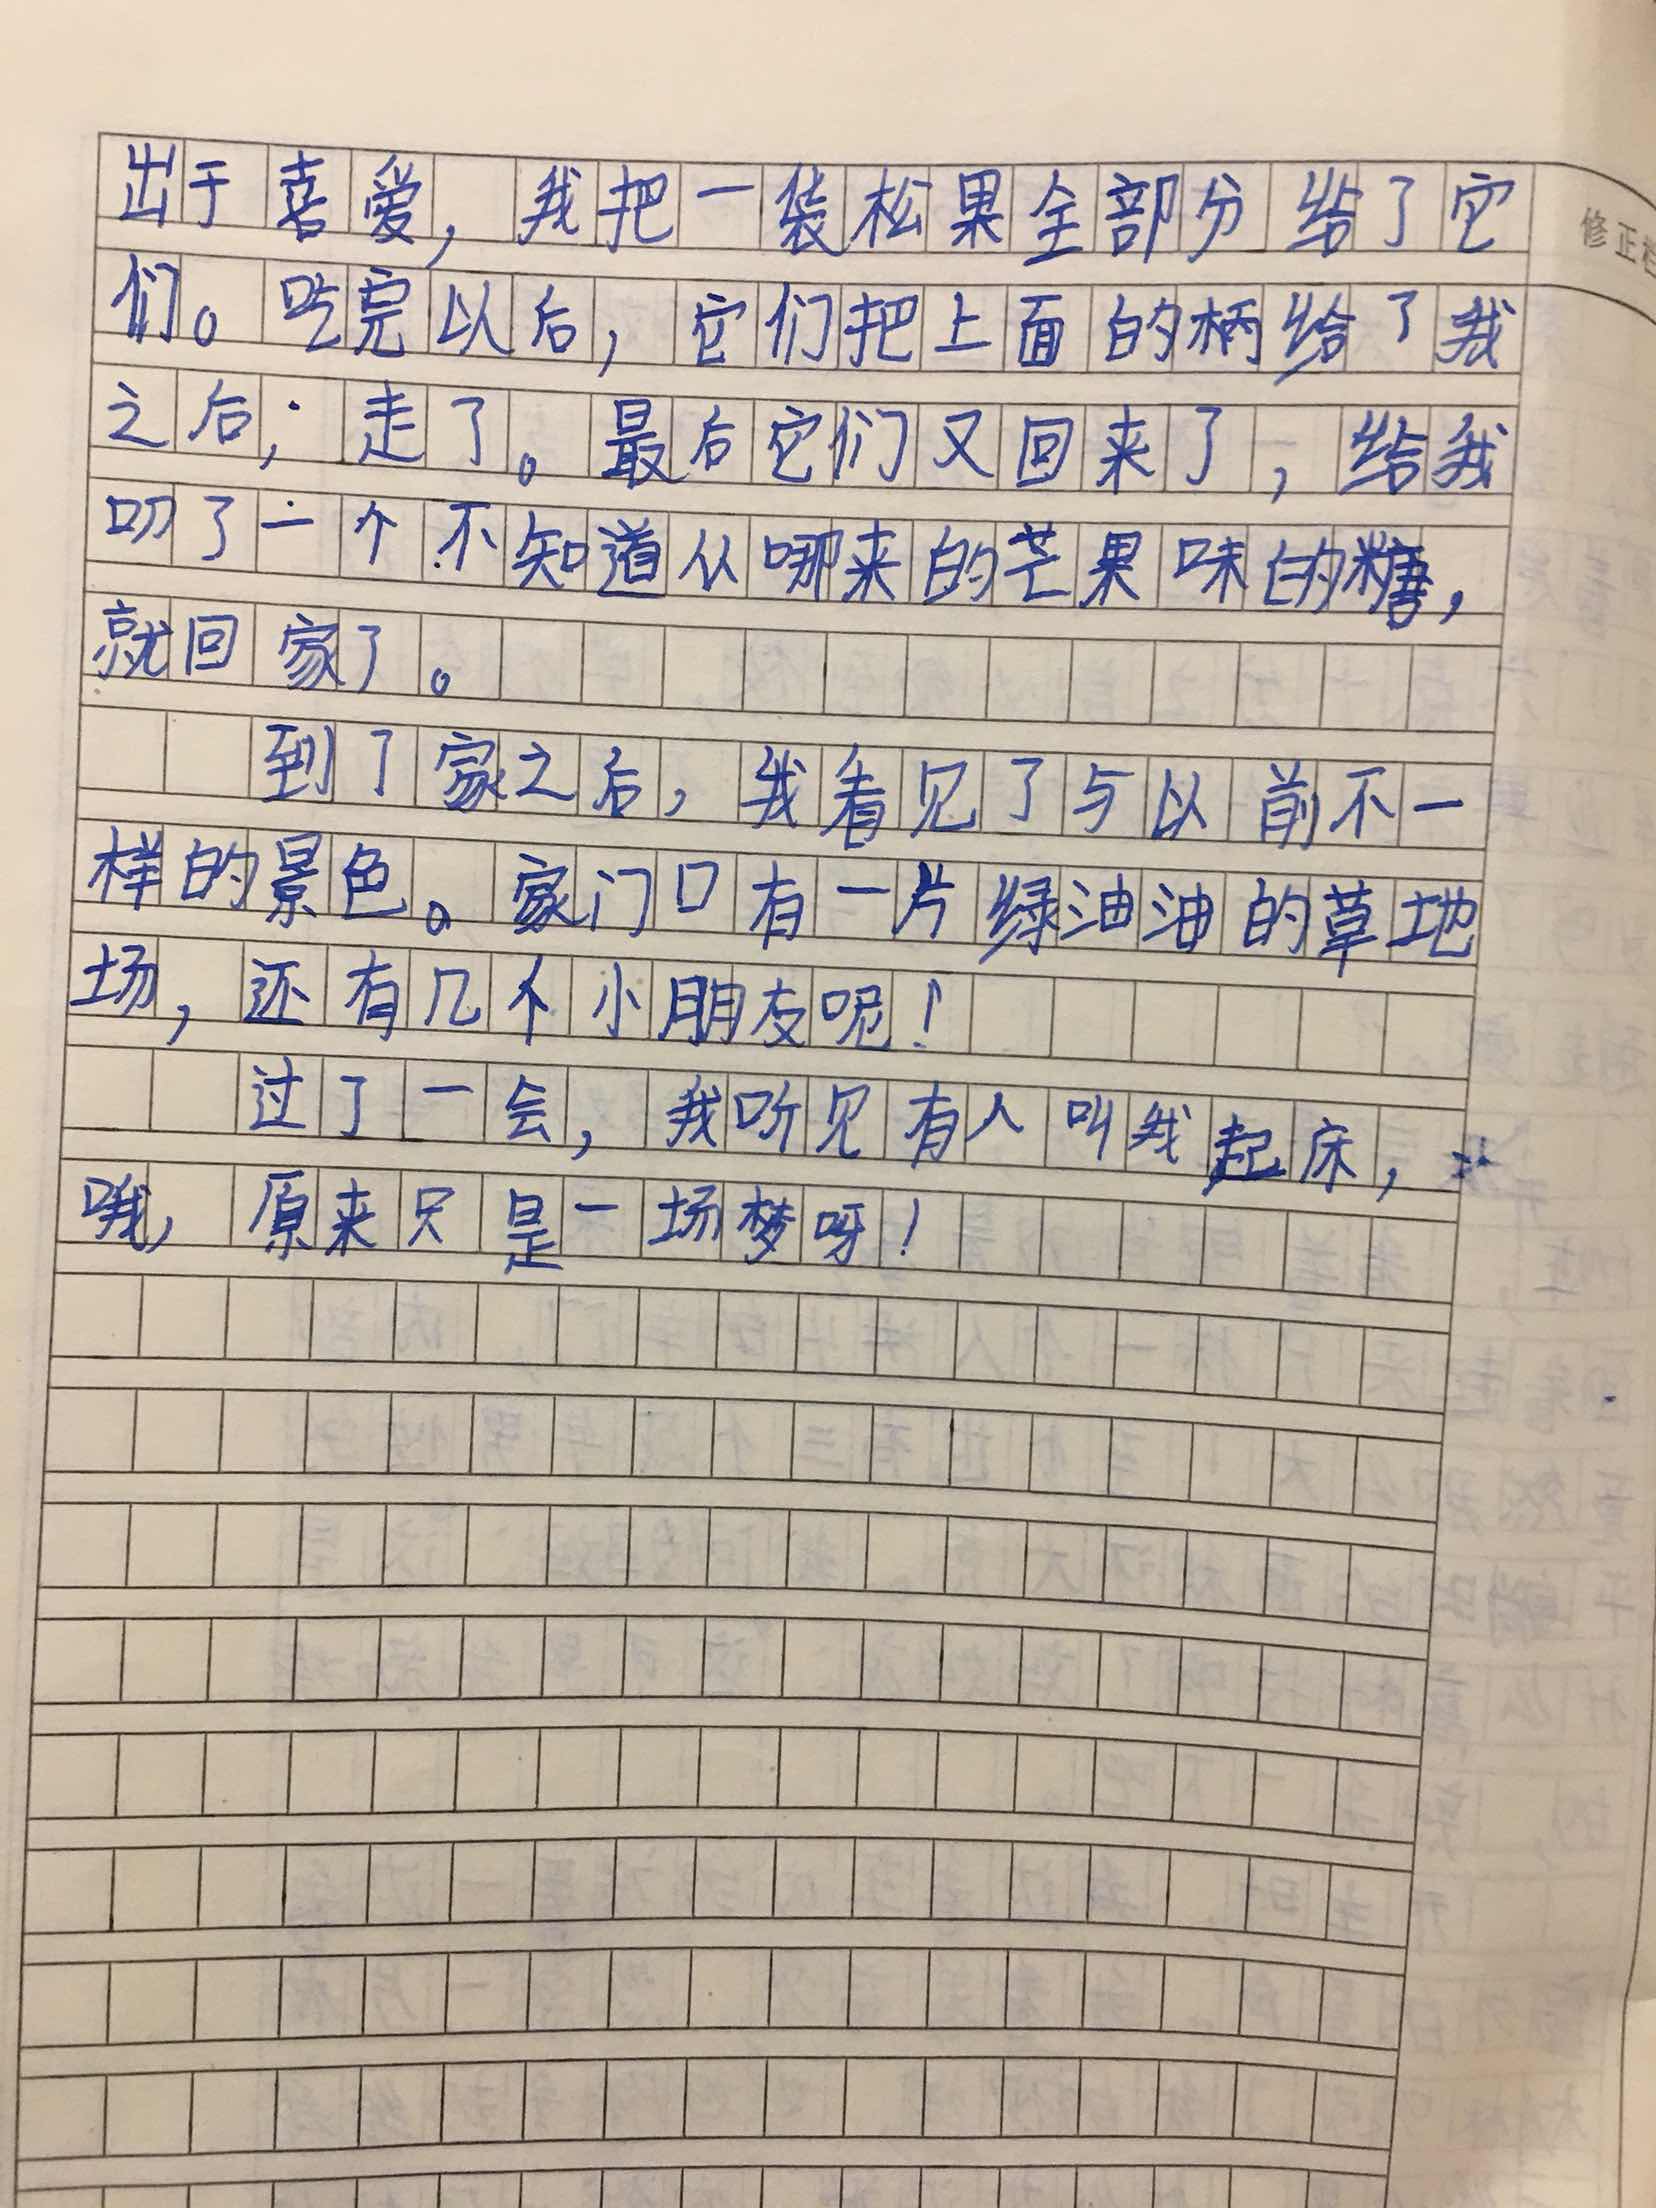 出于喜爱，我把一袋松果全部分给了它
修正栏
们。吃完以后，它们把上面的柄给了我
之后，走了。最后它们又回来了，给我
叨了一个不知道从哪来的芒果味的糖，
就回家了。
到了家之后，我看见了与以前不一
样的景色。家门口有一片绿油油的草地
场，还有几个小朋友呢！
过了一会，我听见有人叫我起床，
哦，原来只是一场梦呀！